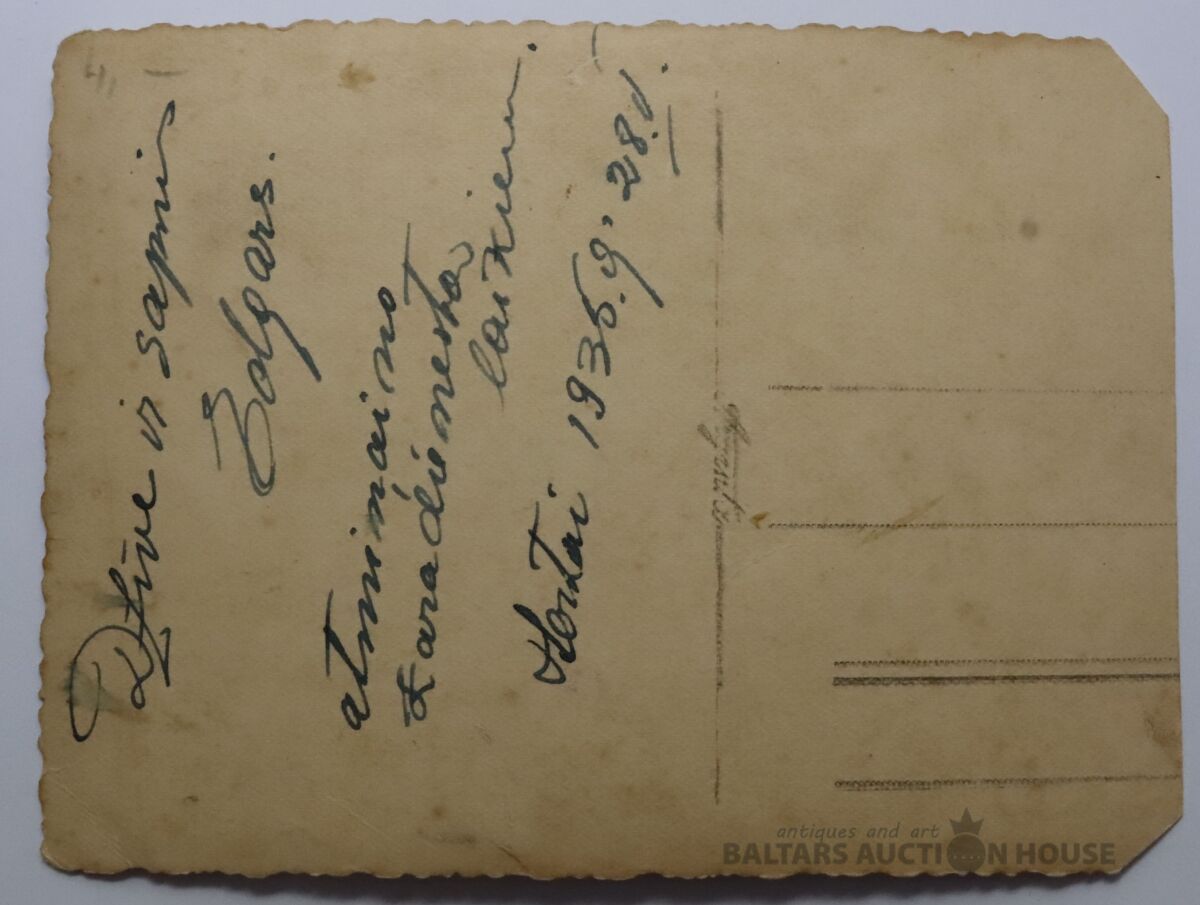 Dzīve ir sapnis
Edgars.
atminai no
Karadienesta
laikiem.
1935.g. 28.
antiques and art
BALTARS AUCTION HOUSE